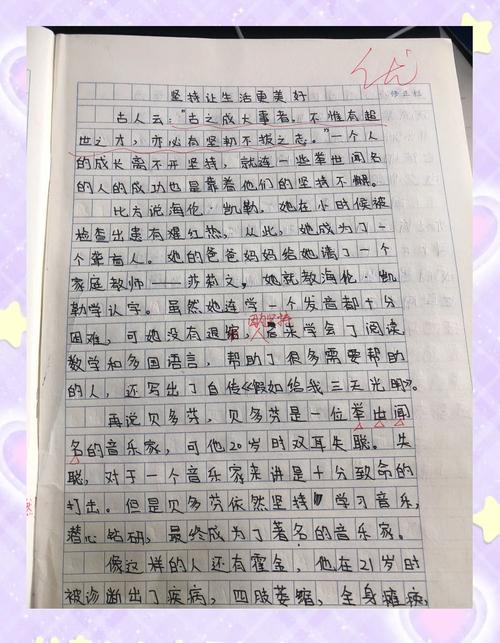 优
坚持让生活更美好
修正栏
古人云:"古之成大事者,不惟有超
世之才,亦必有坚韧不拔之志。"一个人
的成长离不开坚持,就连一些举世闻名
的人的成功也是靠着他们的坚持不懈。
比方说海伦·凯勒,她在小时候被
检查出患有猩红热,从此,她成为了一
个聋盲人。她的爸爸妈妈给她请了一个
家庭教师——莎莉文,她就教海伦·凯
勒学认字。虽然她连学一个发音都十分
困难,可她没有退缩,后来学会了阅读
坚持
数学和多国语言,帮助了很多需要帮助
的人,还写出了自传《假如给我三天光明》。
再说贝多芬,贝多芬是一位举世闻
名的音乐家,可他20岁时双耳失聪。失
聪,对于一个音乐家来讲是十分致命的
打击。但是贝多芬依然坚持学习音乐,
潜心钻研,最终成为了著名的音乐家。
像这样的人还有霍金,他在21岁时
被诊断出了疾病,四肢萎缩,全身瘫痪,